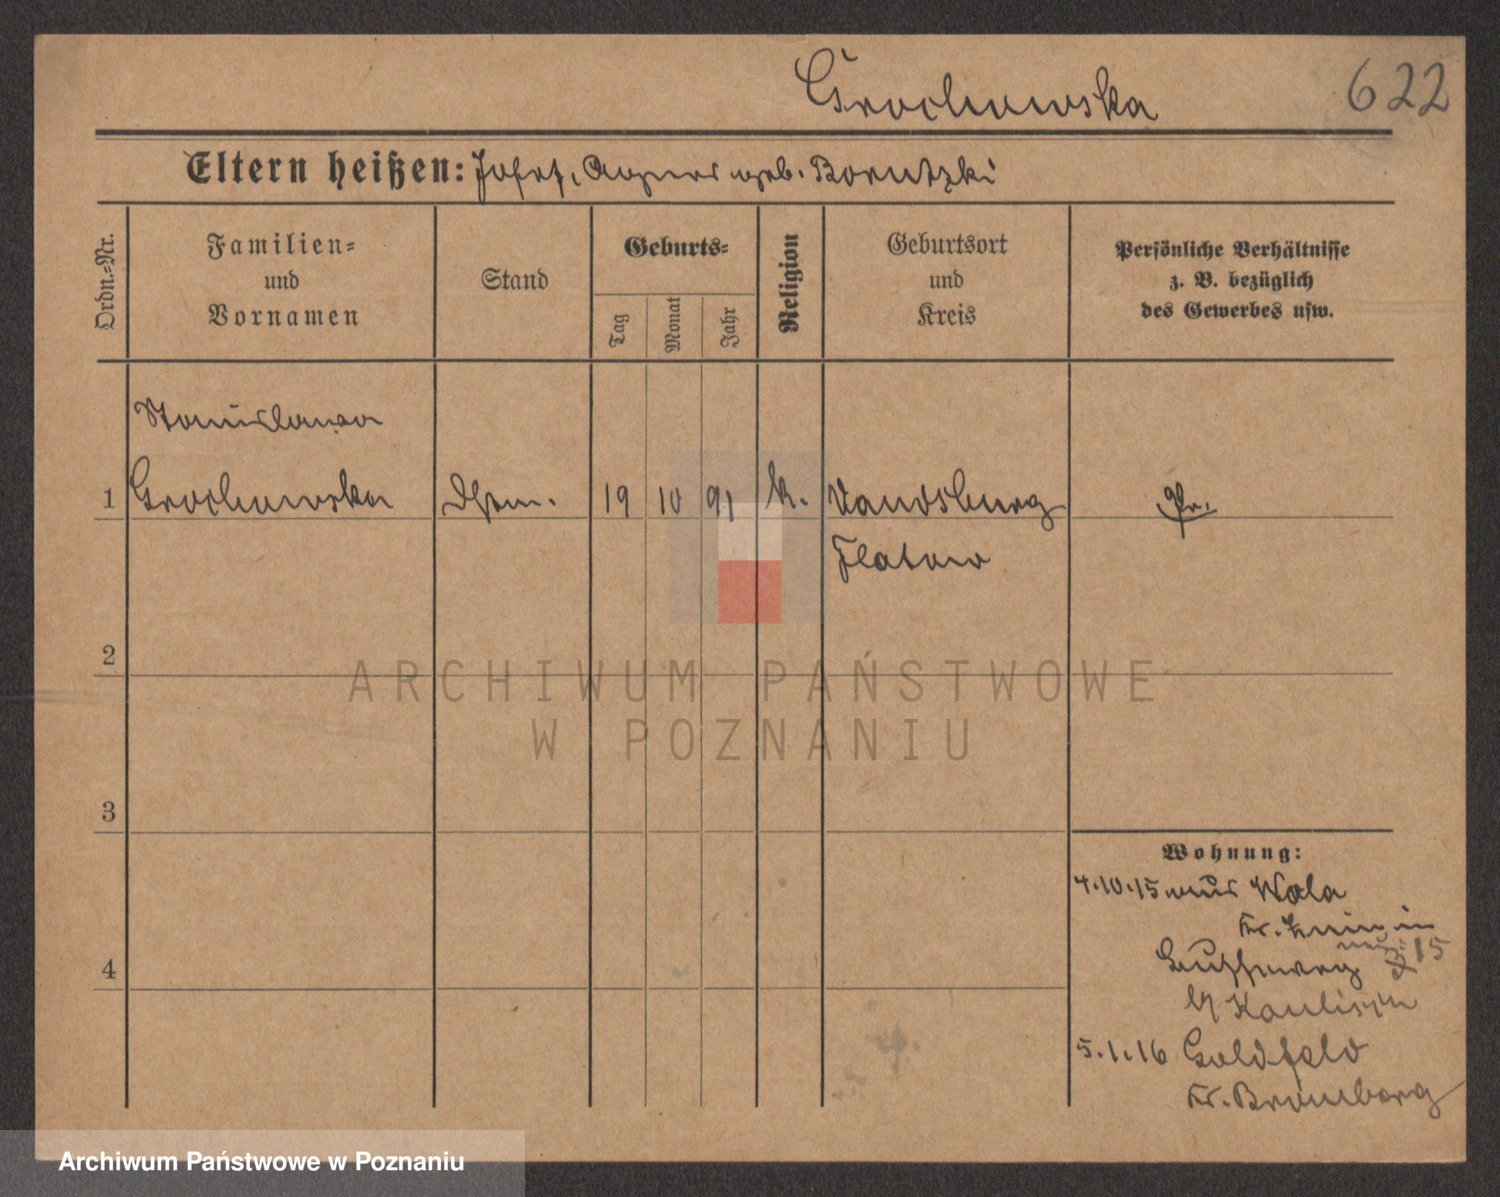 Grochowska
622
Eltern heißen: Josef, Agnes geb. Borutzki
Ordn.=Nr.
Familien=
und
Vornamen
Stand
Geburts=
Tag
Monat
Jahr
Religion
Geburtsort
und
Kreis
Persönliche Verhältnisse
z. B. bezüglich
des Gewerbes usw.
Stanislawa
1 Grochowska 19 10 91 k. Vandsburg Pr.
Flatow
2
3
4
Wohnung:
4.10.15 aus Wola
Kr. Znin in
15
5.1.16 Goldfeld
Kr. Bromberg
ARCHIWUM PAŃSTWOWE
W POZNANIU
Archiwum Państwowe w Poznaniu